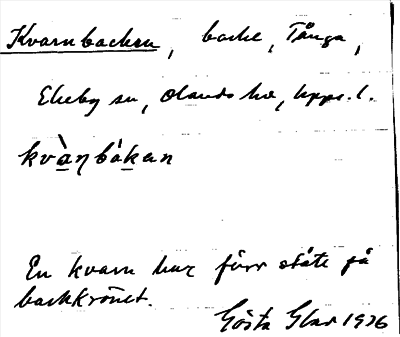 Kvarnbacken, backe, Tånga,
Ekeby sn, Olands hd, Upps. l.
kvàɳbákan
En kvarn har förr stått på
backkrönet.
Gösta Glas 1926